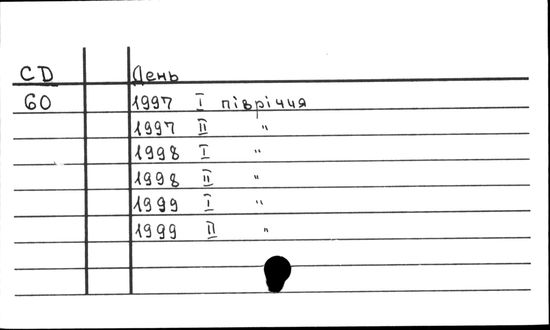 CD День
60 1997 I півріччя
1997 II "
1998 I "
1998 II "
1999 I "
1999 II "